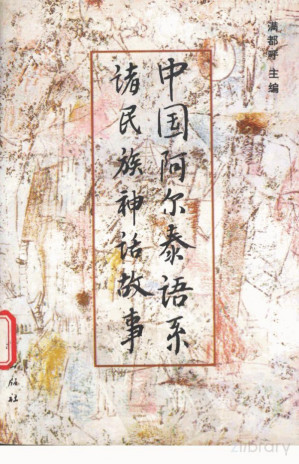 满都呼 主编
中国阿尔泰语系
诸民族神话故事
版社
zlibrary